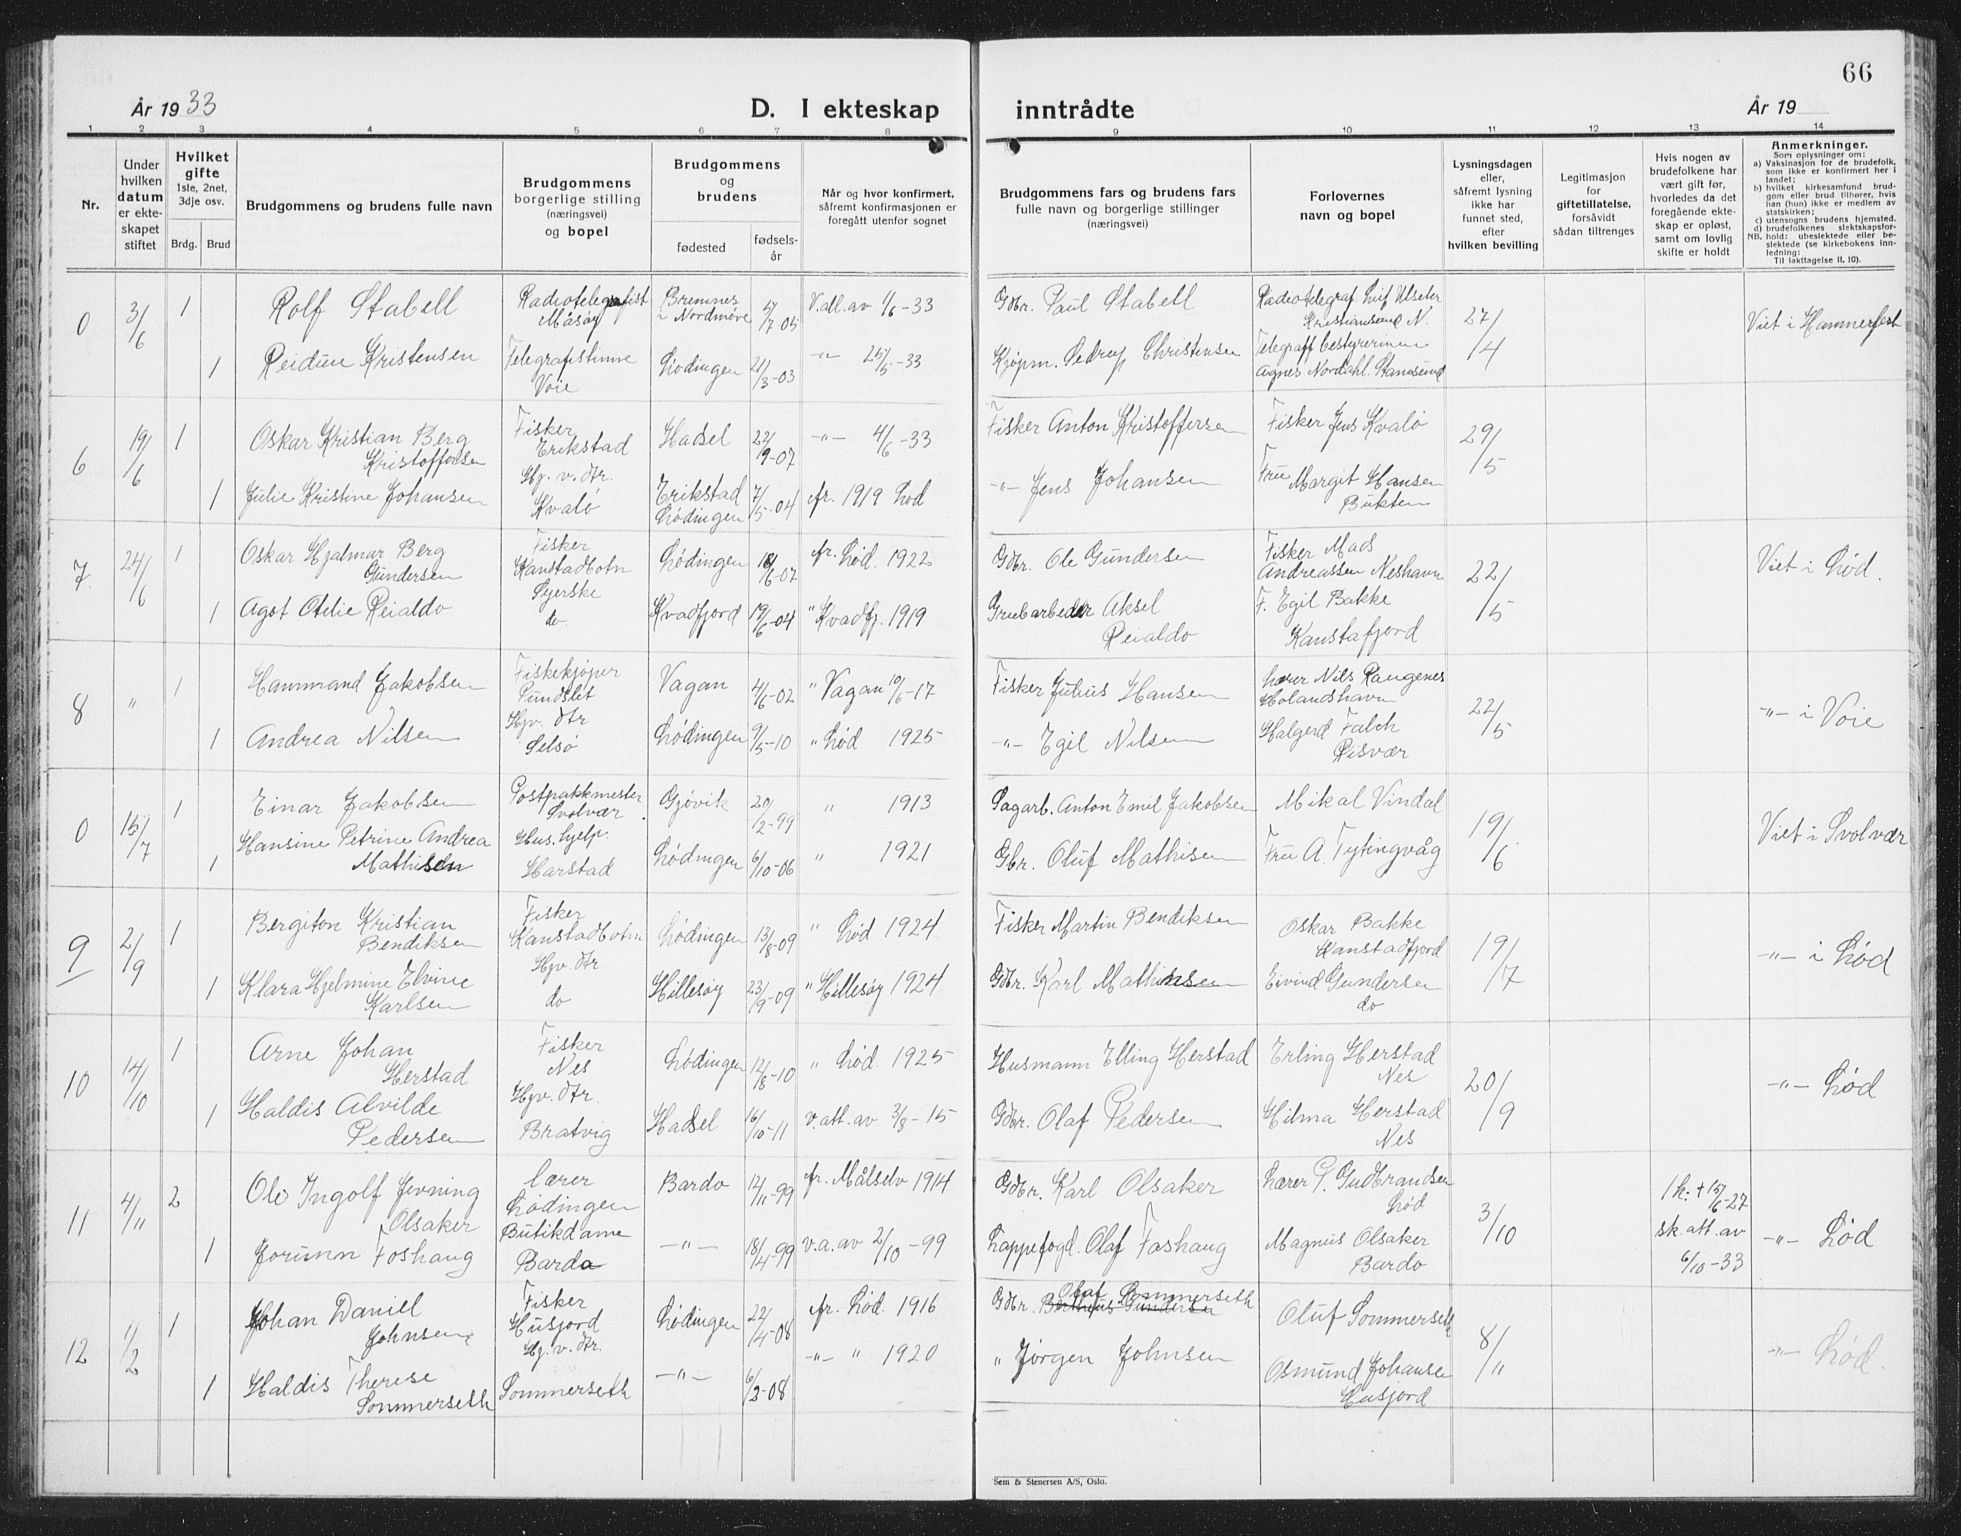 66
År 1933
D. I ekteskap inntrådte
År 19
1 2 3 4 5 6 7 8 9 10 11 12 13 14
Nr.
Under hvilken datum er ekteskapet stiftet
Hvilket gifte
1ste, 2net, 3dje osv.
Brdg. Brud
Brudgommens og brudens fulle navn
Brudgommens borgerlige stilling (næringsvei) og bopel
Brudgommens og brudens
fødested
fødselsår
Når og hvor konfirmert, såfremt konfirmasjonen er foregått utenfor sognet
Brudgommens fars og brudens fars fulle navn og borgerlige stillinger (næringsvei)
Forlovernes navn og bopel
Lysningsdagen eller, såfremt lysning ikke har funnet sted, efter hvilken bevilling
Legitimasjon for giftetillatelse, forsåvidt sådan tiltrenges
Hvis nogen av brudefolkene har vært gift før, hvorledes da det foregående ekteskap er opløst, samt om lovlig skifte er holdt
Anmerkninger.
Som oplysninger om:
a) Vaksinasjon for de brudefolk, som ikke er konfirmert her i landet;
b) hvilket kirkesamfund brudgom eller brud tilhører, hvis han (hun) ikke er medlem av statskirken;
c) utensogns brudens hjemsted.
d) brudefolkenes slektskapsforhold: ubeslektede eller beslektede (se kirkebokens innledning:
NB.
Til iakttagelse II, 10).
0 3/6 1 Rolf Stabell Radiotelegrafist Måsøy Bremnes i Nordmøre 5/7-05 V. all. av 1/6-33 Gdbr. Paul Stabell Radiotelegraf. Leif Ulseter Kristiansund N. 27/4 Viet i Hammerfest
1 Reidun Kristensen Telegrafistinne Voie Lødingen 21/3-03 -"- 25/5-33 Kjøpm. Sedrup Christensen Telegraf bestyrerinne Agnes Nordahl. Stamsund
6 19/6 1 Oskar Kristian Berg Kristoffersen Fisker Erikstad Hadsel 22/9-07 -"- 4/6-33 Fisker Anton Kristoffersen Fisker Jens Kvalø 29/5
1 Julie Kristine Johansen Hj. v. dtr. Kvalø Erikstad Lødingen 7/5-04 fr. 1919 Lød -"- Jens Johansen Fru Margit Hansen Bukten
7. 24/6 1 Oskar Hjalmar Berg Gundersen Fisker Kanstadbotn Lødingen 18/6-07 fr. Lød. 1922 Gdbr. Ole Gundersen Fisker Mads Andreassen Neshavn 22/5 Viet i Lød.
1 Agot Otelie Reialdo Syerske do. Kvædfjord 19/6-04 " Kvædfj. 1919 Grubarbeider Aksel Reialdo F. Egil Bakke Kanstafjord
8 " 1 Hammand Jakobsen Fiskekjøper Rundslet Vagan 4/6-02 " Vagan 10/6-17 Fisker Julius Hansen Lærer Nils Rangenes Holandshavn 22/5 -"- i Voie
1 Andrea Nilsen Hjv. dtr Selsø Lødingen 9/5-10 " Lød 1925 -"- Egil Nilsen Halgerd Falch Risvær
0 15/7 1 Einar Jakobsen Postpakkmester Svolvær Gjøvik 20/2-99 " 1913 Sagarb. Anton Emil Jakobsen Mikal Vindal 19/6 Viet i Svolvær
1 Hansine Petrine Andrea Mathisen Hus. hjelp. Harstad Lødingen 6/10-06 " 1921 Gbr. Oluf Mathisen Fru A. Tytingvåg
9 2/9 1 Bergiton Kristian Bendiksen Fisker Kanstadbotn Lødingen 13/8-09 " Lød 1924 Fisker Martin Bendiksen Oskar Bakke Kanstadfjord 19/7 -"- i Lød
1 Klara Hjelmine Elvine Karlsen Hjv. dtr. do Hillesøy 23/9-09 " Hillesøy 1924 Gdbr. Karl Mathinsen Eivind Gundersen do
10 14/10 1 Arne Johan Herstad Fisker Nes Lødingen 12/8-10 " Lød. 1925 Husmann Elling Herstad Erling Herstad Nes 20/9 -"- Lød
1 Haldis Alvilde Pedersen Hjv. dtr. Bratvig Hadsel 16/10-11 v. att. av 3/8-15 Gdbr. Olaf Pedersen Hilma Herstad Nes
11 4/11 2 Ole Ingolf Jevning Olsaker Lærer Lødingen Bardo 12/11-99 fr. Målselv 1914 Gdbr. Karl Olsaker Lærer P. Gudbrandsen Lød 3/10 1 h: + 15/6-27 sk. att. av 6/10-33 -"- Lød
1 Jorunn Foshaug Butikdame Bardo -"- 18/4-99 v. a. av 2/10-99 Lappefogd. Olaf Foshaug Magnus Olsaker Bardo
12 1/2 1 Johan Daniel Johnsen Fisker Husjord Lødingen 22/4-08 fr. Lød. 1916 Gdbr. Olaf Sommerseth Oluf Sommerseth 8/11 -"- Lød.
1 Haldis Therese Sommerseth Hj. v. dtr. Sommerseth -"- 6/3-08 -"- " 1920 " Jørgen Johnsen Osmund Johansen Husjord
Sem & Stenersen A/S, Oslo.